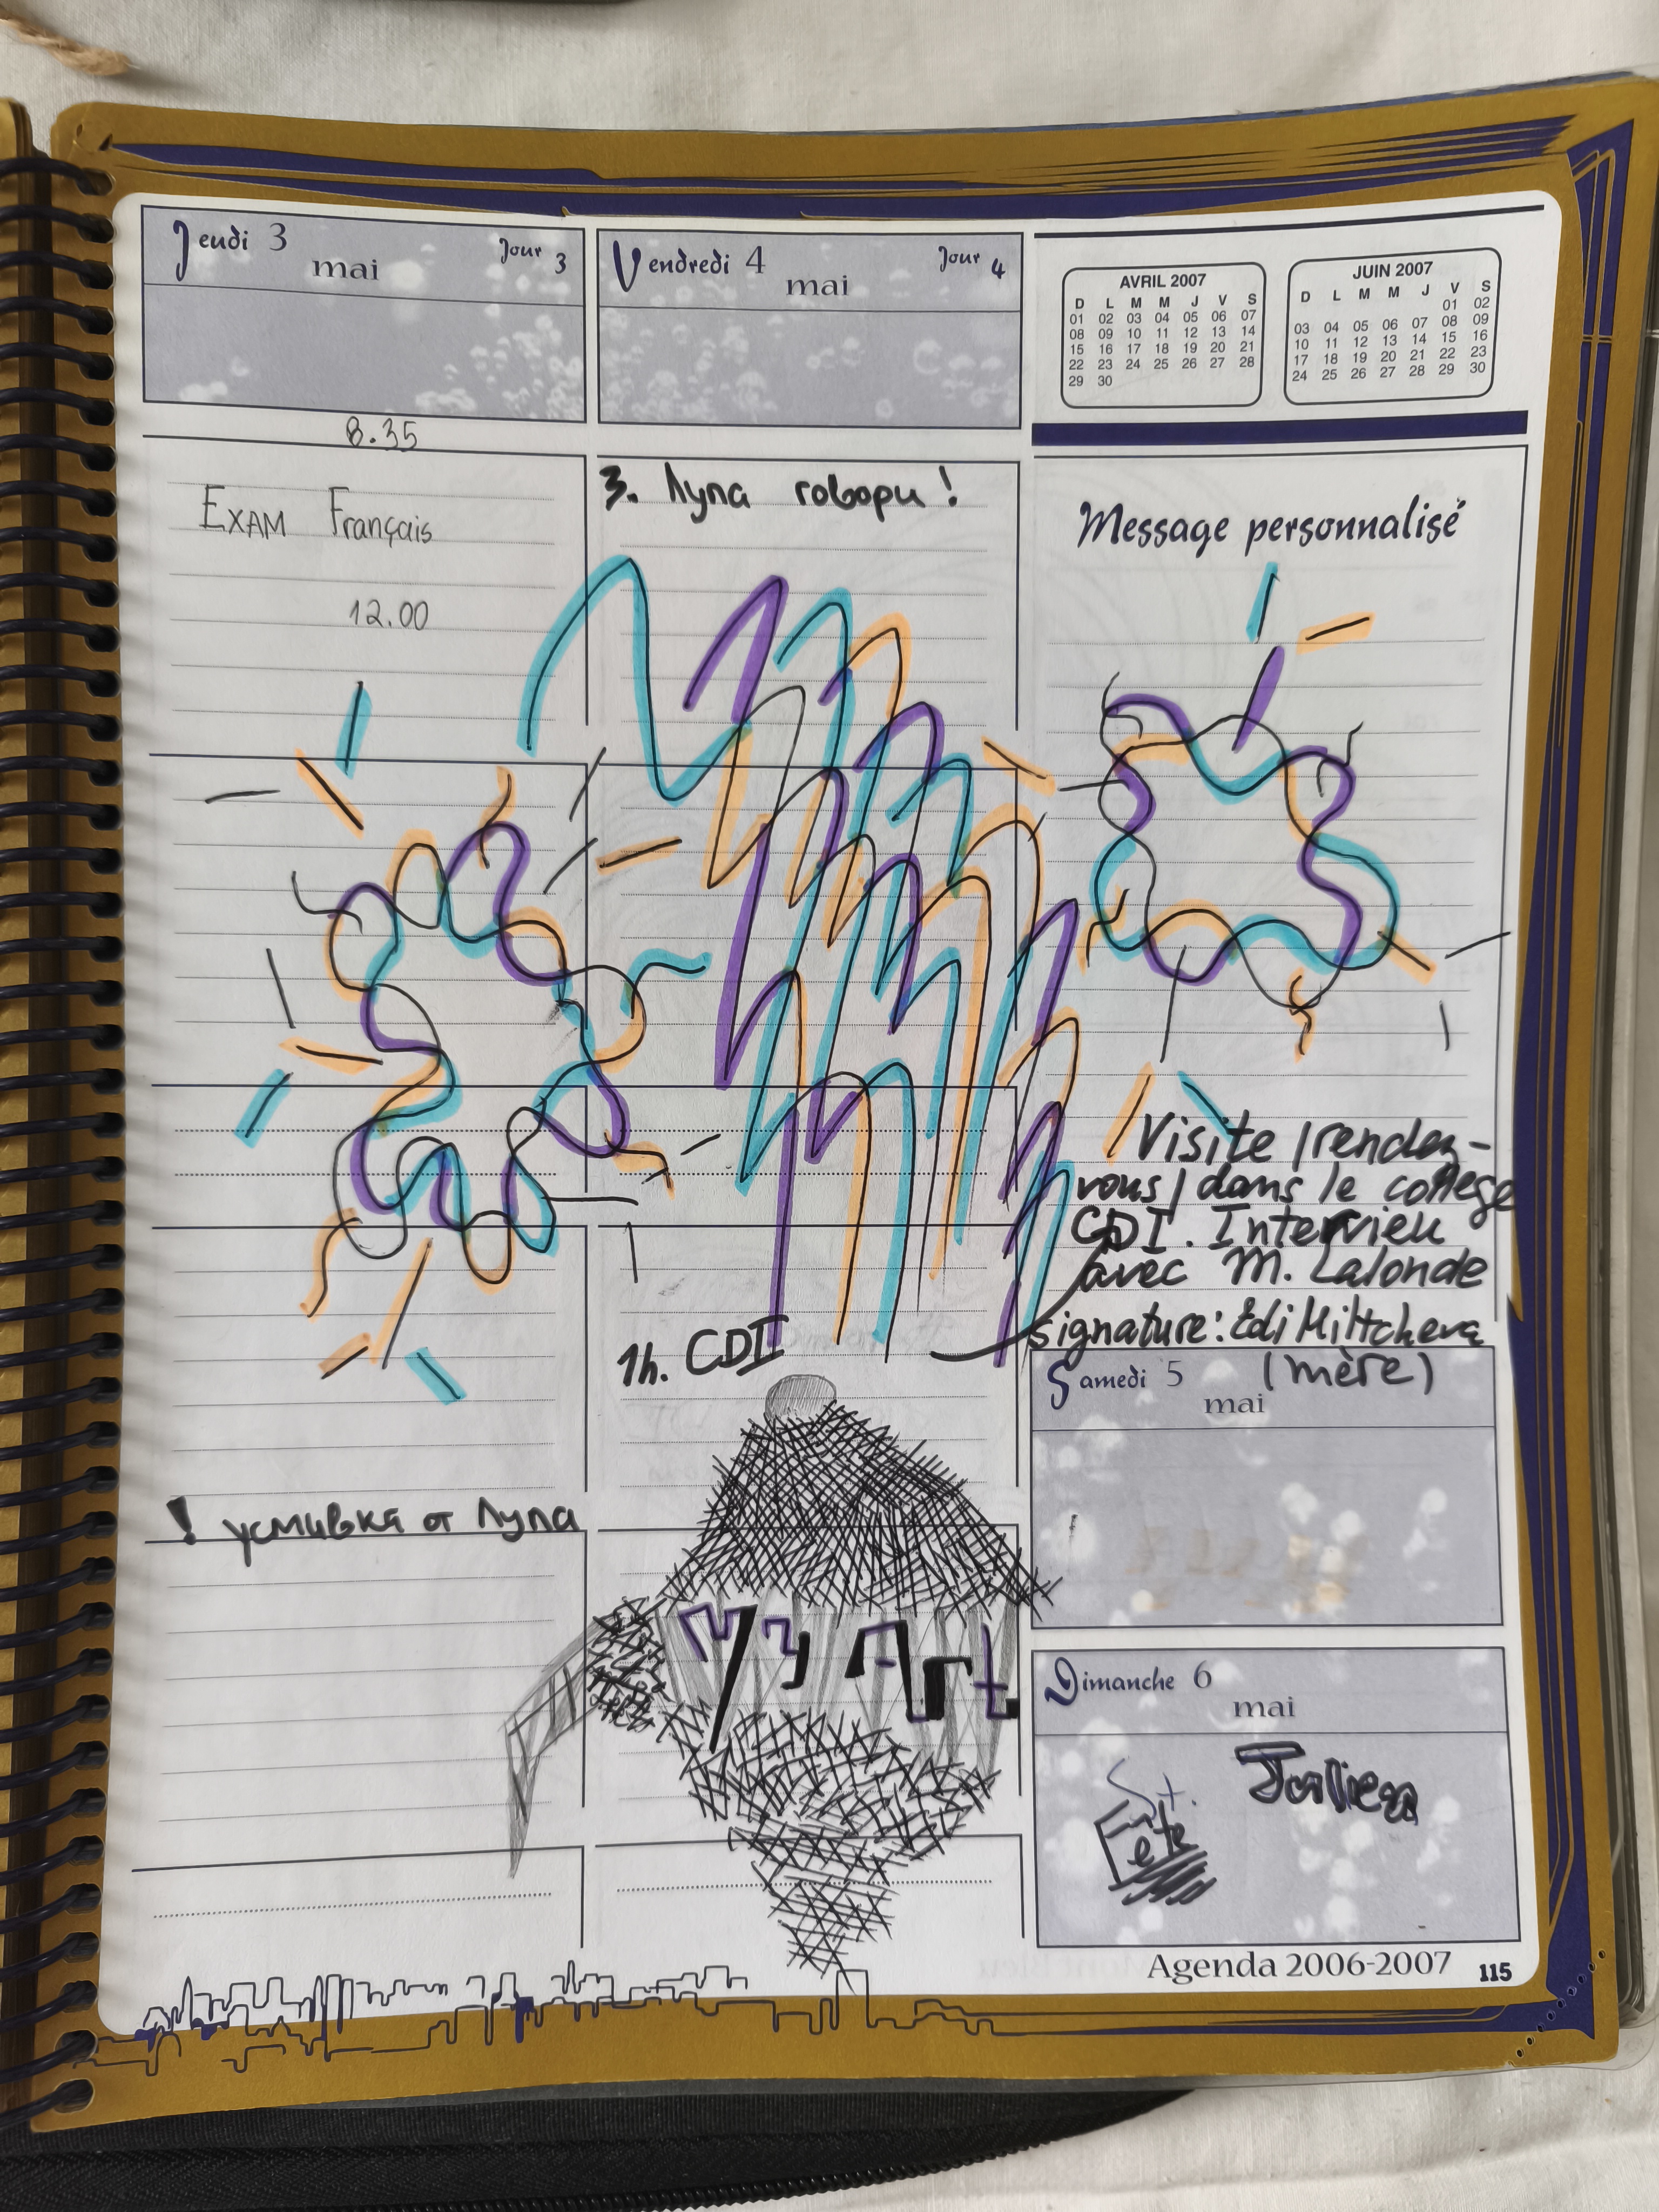 Jeudi 3
mai
Jour 3
8.35
EXAM Français
12.00
! усмивка от Лупа
Vendredi 4
mai
Jour 4
3. Лупа говори!
1h. CDI
AVRIL 2007
D L M M J V S
01 02 03 04 05 06 07
08 09 10 11 12 13 14
15 16 17 18 19 20 21
22 23 24 25 26 27 28
29 30
JUIN 2007
D L M M J V S
01 02
03 04 05 06 07 08 09
10 11 12 13 14 15 16
17 18 19 20 21 22 23
24 25 26 27 28 29 30
Message personnalisé
Visite /rendez-
vous/ dans le college
CDI. Interview
avec M. Lalonde
signature: Edi Miltcheva
(mère)
Samedi 5
mai
Dimanche 6
mai
St.
Fête
Agenda 2006-2007 115